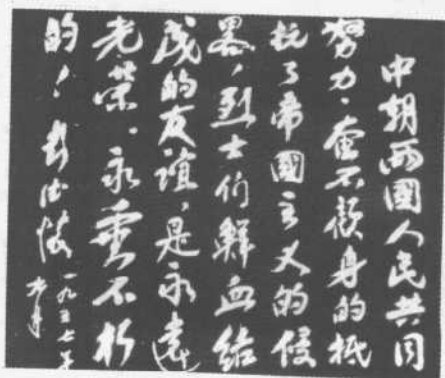 中朝兩國人民共同
努力、奋不顧身的抵
抗了帝國主义的侵
畧，烈士们鮮血结
成的友誼，是永遠
光荣、永垂不朽
的！彭德懷
一九五七年